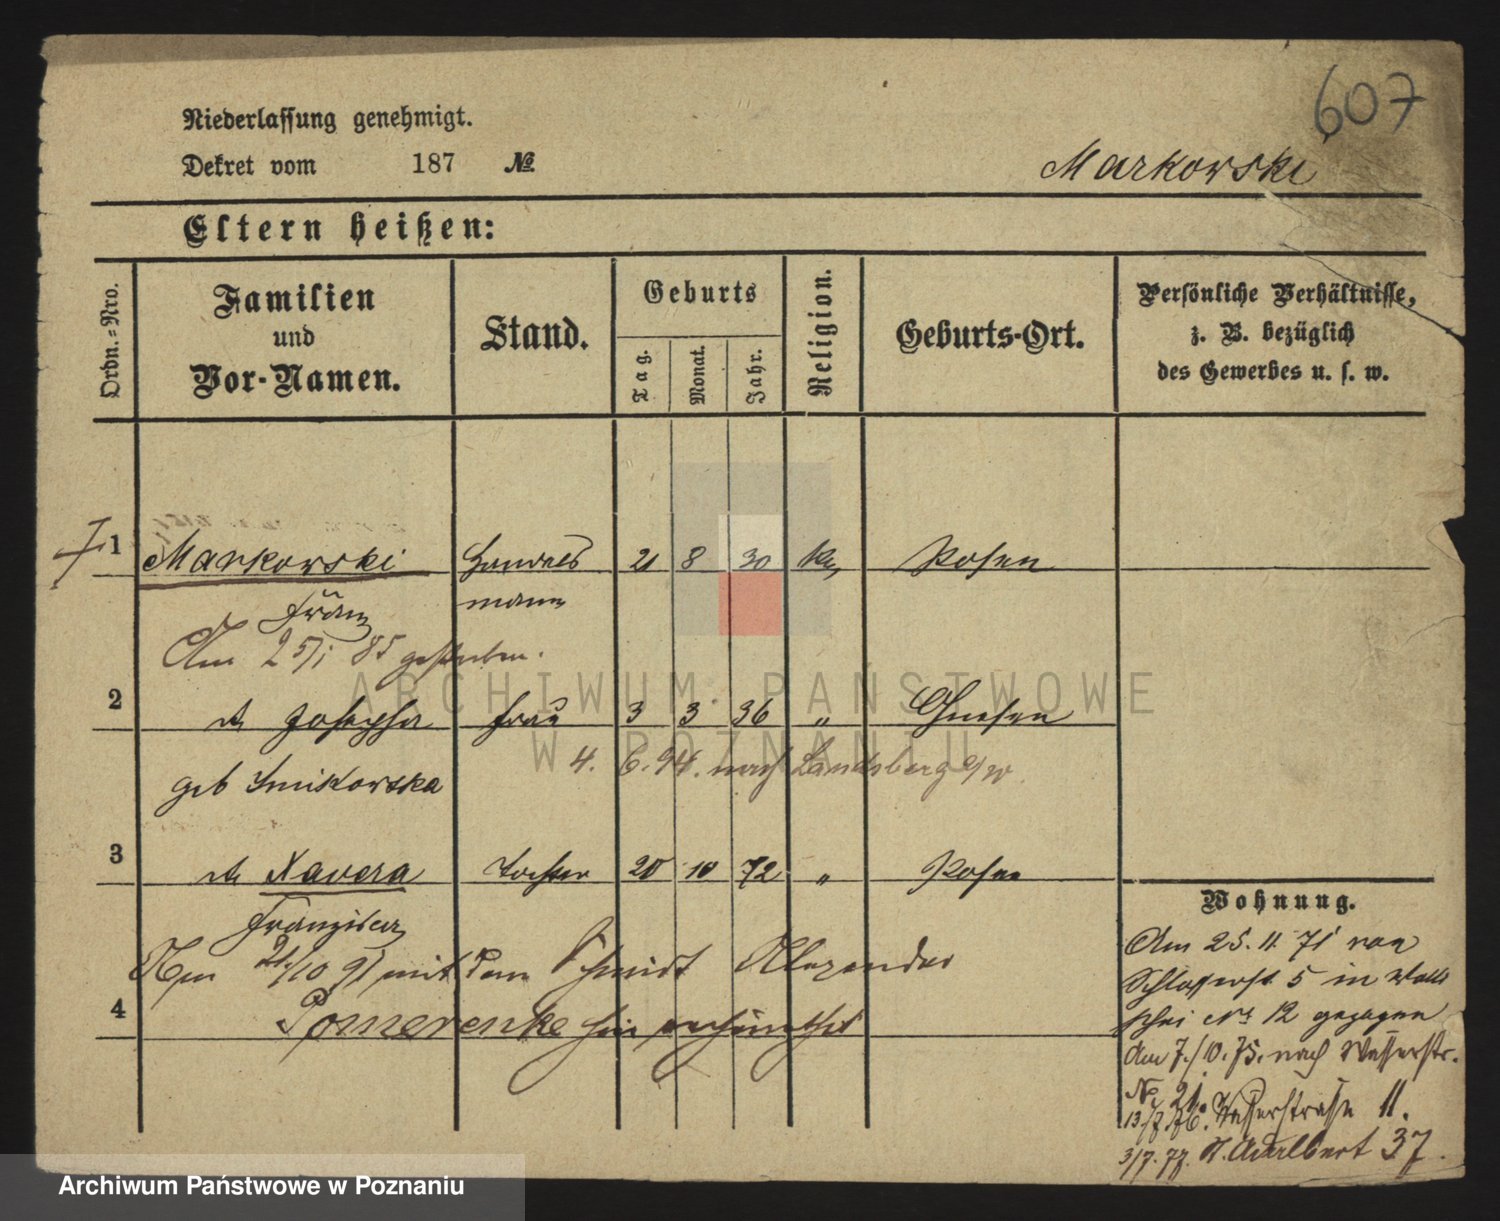 607
Niederlassung genehmigt.
Dekret vom 187 №
Markowski
Eltern heißen:
Ordn.=Nro.
Familien
und
Vor-Namen.
Stand.
Geburts
Tag.
Monat.
Jahr.
Religion.
Geburts-Ort.
Persönliche Verhältnisse,
z. B. bezüglich
des Gewerbes u. s. w.
1 Markowski Handels 21 8 30 Posen
Franz mann
Am 25/1 85 gestorben.
2 Josepha Frau 3 3 36 " Gnesen
geb Smikowska
4. 6. 94. nach Landsberg a/w.
3 Xavera Tochter 20 10 72 " Posen
Franziska
Am 21/10 91 mit dem Schmidt Alexander
4 Pomerenke hier
Wohnung.
Am 25. 11 71 von
Schlosserst. 5 in Walli
schei No 12 gezogen
Am 7./10. 75. nach Wasserstr.
No 21.
Wasserstraße 11.
3/7. 77. St. Adalbert 37.
ARCHIWUM PAŃSTWOWE
W POZNANIU
Archiwum Państwowe w Poznaniu